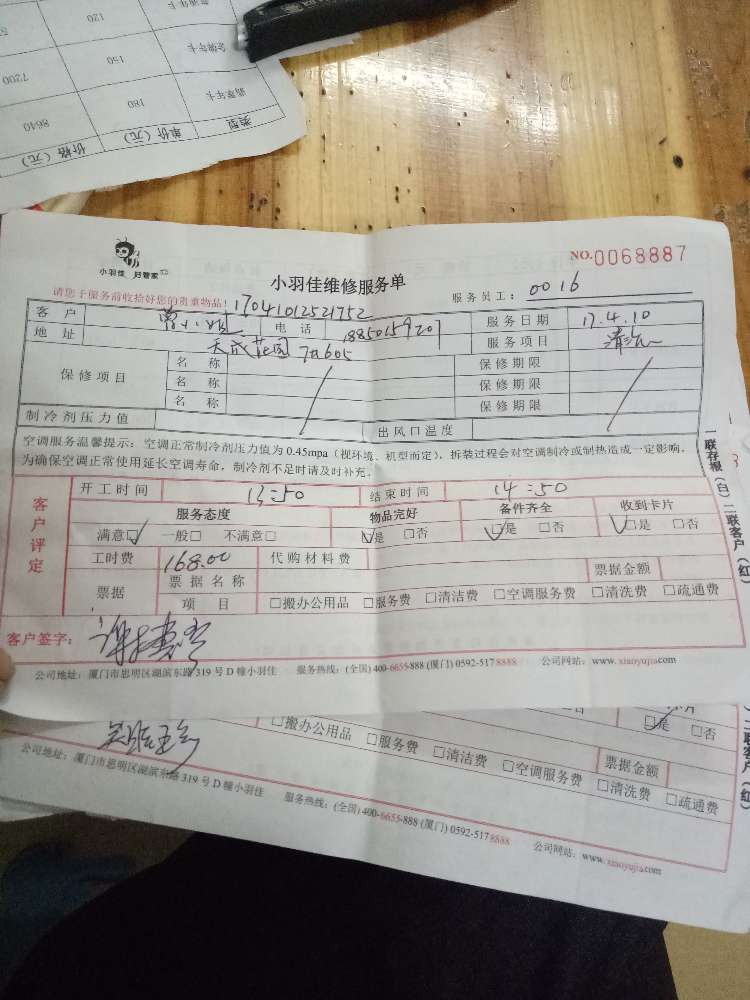 普通年卡 120
金领年卡 150 7200
翡翠年卡 180 8640
类型 单价（元） 价格（元）
小羽佳 好管家
NO.0068887
小羽佳维修服务单
请您于服务前收拾好您的贵重物品！
17041012521752
服务员工： 0016
客 户 电 话 18850159207 服务日期 17.4.10
地 址 天成花园 服务项目 清洗
保修项目 名 称 保修期限
名 称 保修期限
名 称 保修期限
制冷剂压力值 出风口温度
空调服务温馨提示：空调正常制冷剂压力值为0.45mpa（视环境、机型而定），拆装过程会对空调制冷或制热造成一定影响，
为确保空调正常使用延长空调寿命，制冷剂不足时请及时补充。
客户评定
开工时间 13:50 结束时间 14:50
服务态度 物品完好 备件齐全 收到卡片
满意□ 一般□ 不满意□ □是 □否 □是 □否 □是 □否
工时费 168.00 代购材料费
票据 票据名称 票据金额
项 目 □搬办公用品 □服务费 □清洁费 □空调服务费 □清洗费 □疏通费
客户签字：
公司地址：厦门市思明区湖滨东路319号D幢小羽佳 服务热线：(全国) 400-6655-888 (厦门) 0592-5178888 公司网站：www.xiaoyujia.com
一联存根（白）二联客户（红）
□是 □否
票据金额
□搬办公用品 □服务费 □清洁费 □空调服务费 □清洗费 □疏通费
公司地址：厦门市思明区湖滨东路319号D幢小羽佳 服务热线：(全国) 400-6655-888 (厦门) 0592-5178888 公司网站：www.xiaoyujia.com
联客户（红）